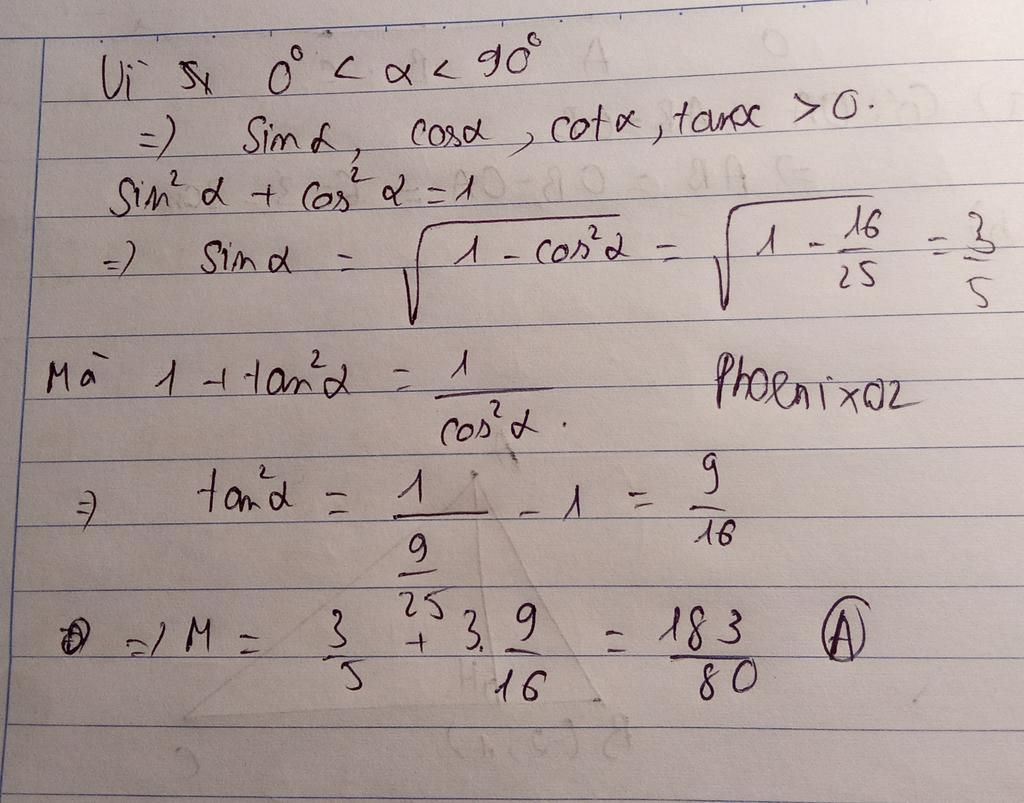 Vì 0° < α < 90°
=> Sin α, cos α, cot α, tan α > 0.
Sin² α + cos² α = 1
=> Sin α = √(1 - cos² α) = √(1 - 16/25) = 3/5
Mà 1 + tan² α = 1/cos² α.
Phoenix02
=> tan² α = 1/(9/25) - 1 = 9/16
=> M = 3/5 + 3. 9/16 = 183/80 Ⓐ